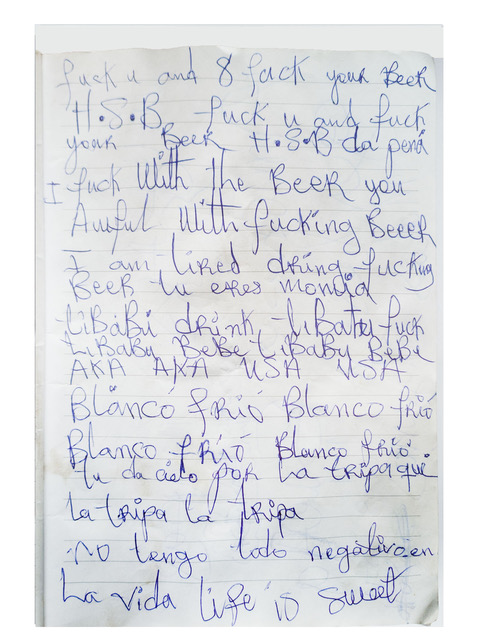 fuck u and 8 fuck your Beer
H.S.B fuck u and fuck
your Beer H.S.B da pena
I fuck With the Beer you
Awful With fucking Beeer
I am tired dring fucking
Beer tu eres mondia
LiBaBy drink LiBaby fuck
LiBaBy BeBe LiBaBy BeBe
AKA AKA USA USA
Blancó frió Blanco frió
Blanco frió Blanco frió
tu da cielo por La tripa qui
La tripa la tripa
No tengo lado negativo en
La vida Life is sweet